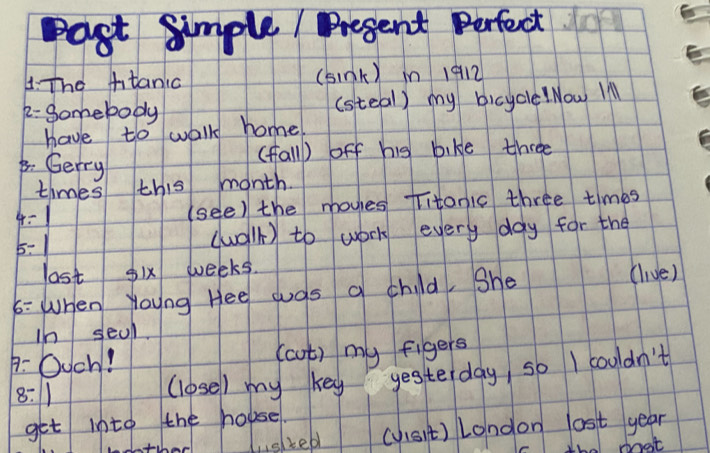 Past Simple / Present Perfect
1. The titanic (sink) in 1912
2- Somebody (steal) my bicycle! Now I'll
have to walk home.
3. Gerry (fall) off his bike three
times this month.
4- I (see) the movies Titanic three times
5- I (walk) to work every day for the
last six weeks.
6- When Young Hee was a child, She (live)
in seul.
7- Ouch! (cut) my figers
8- I (lose) my key yesterday, so I couldn't
get into the house.
(visit) London last year